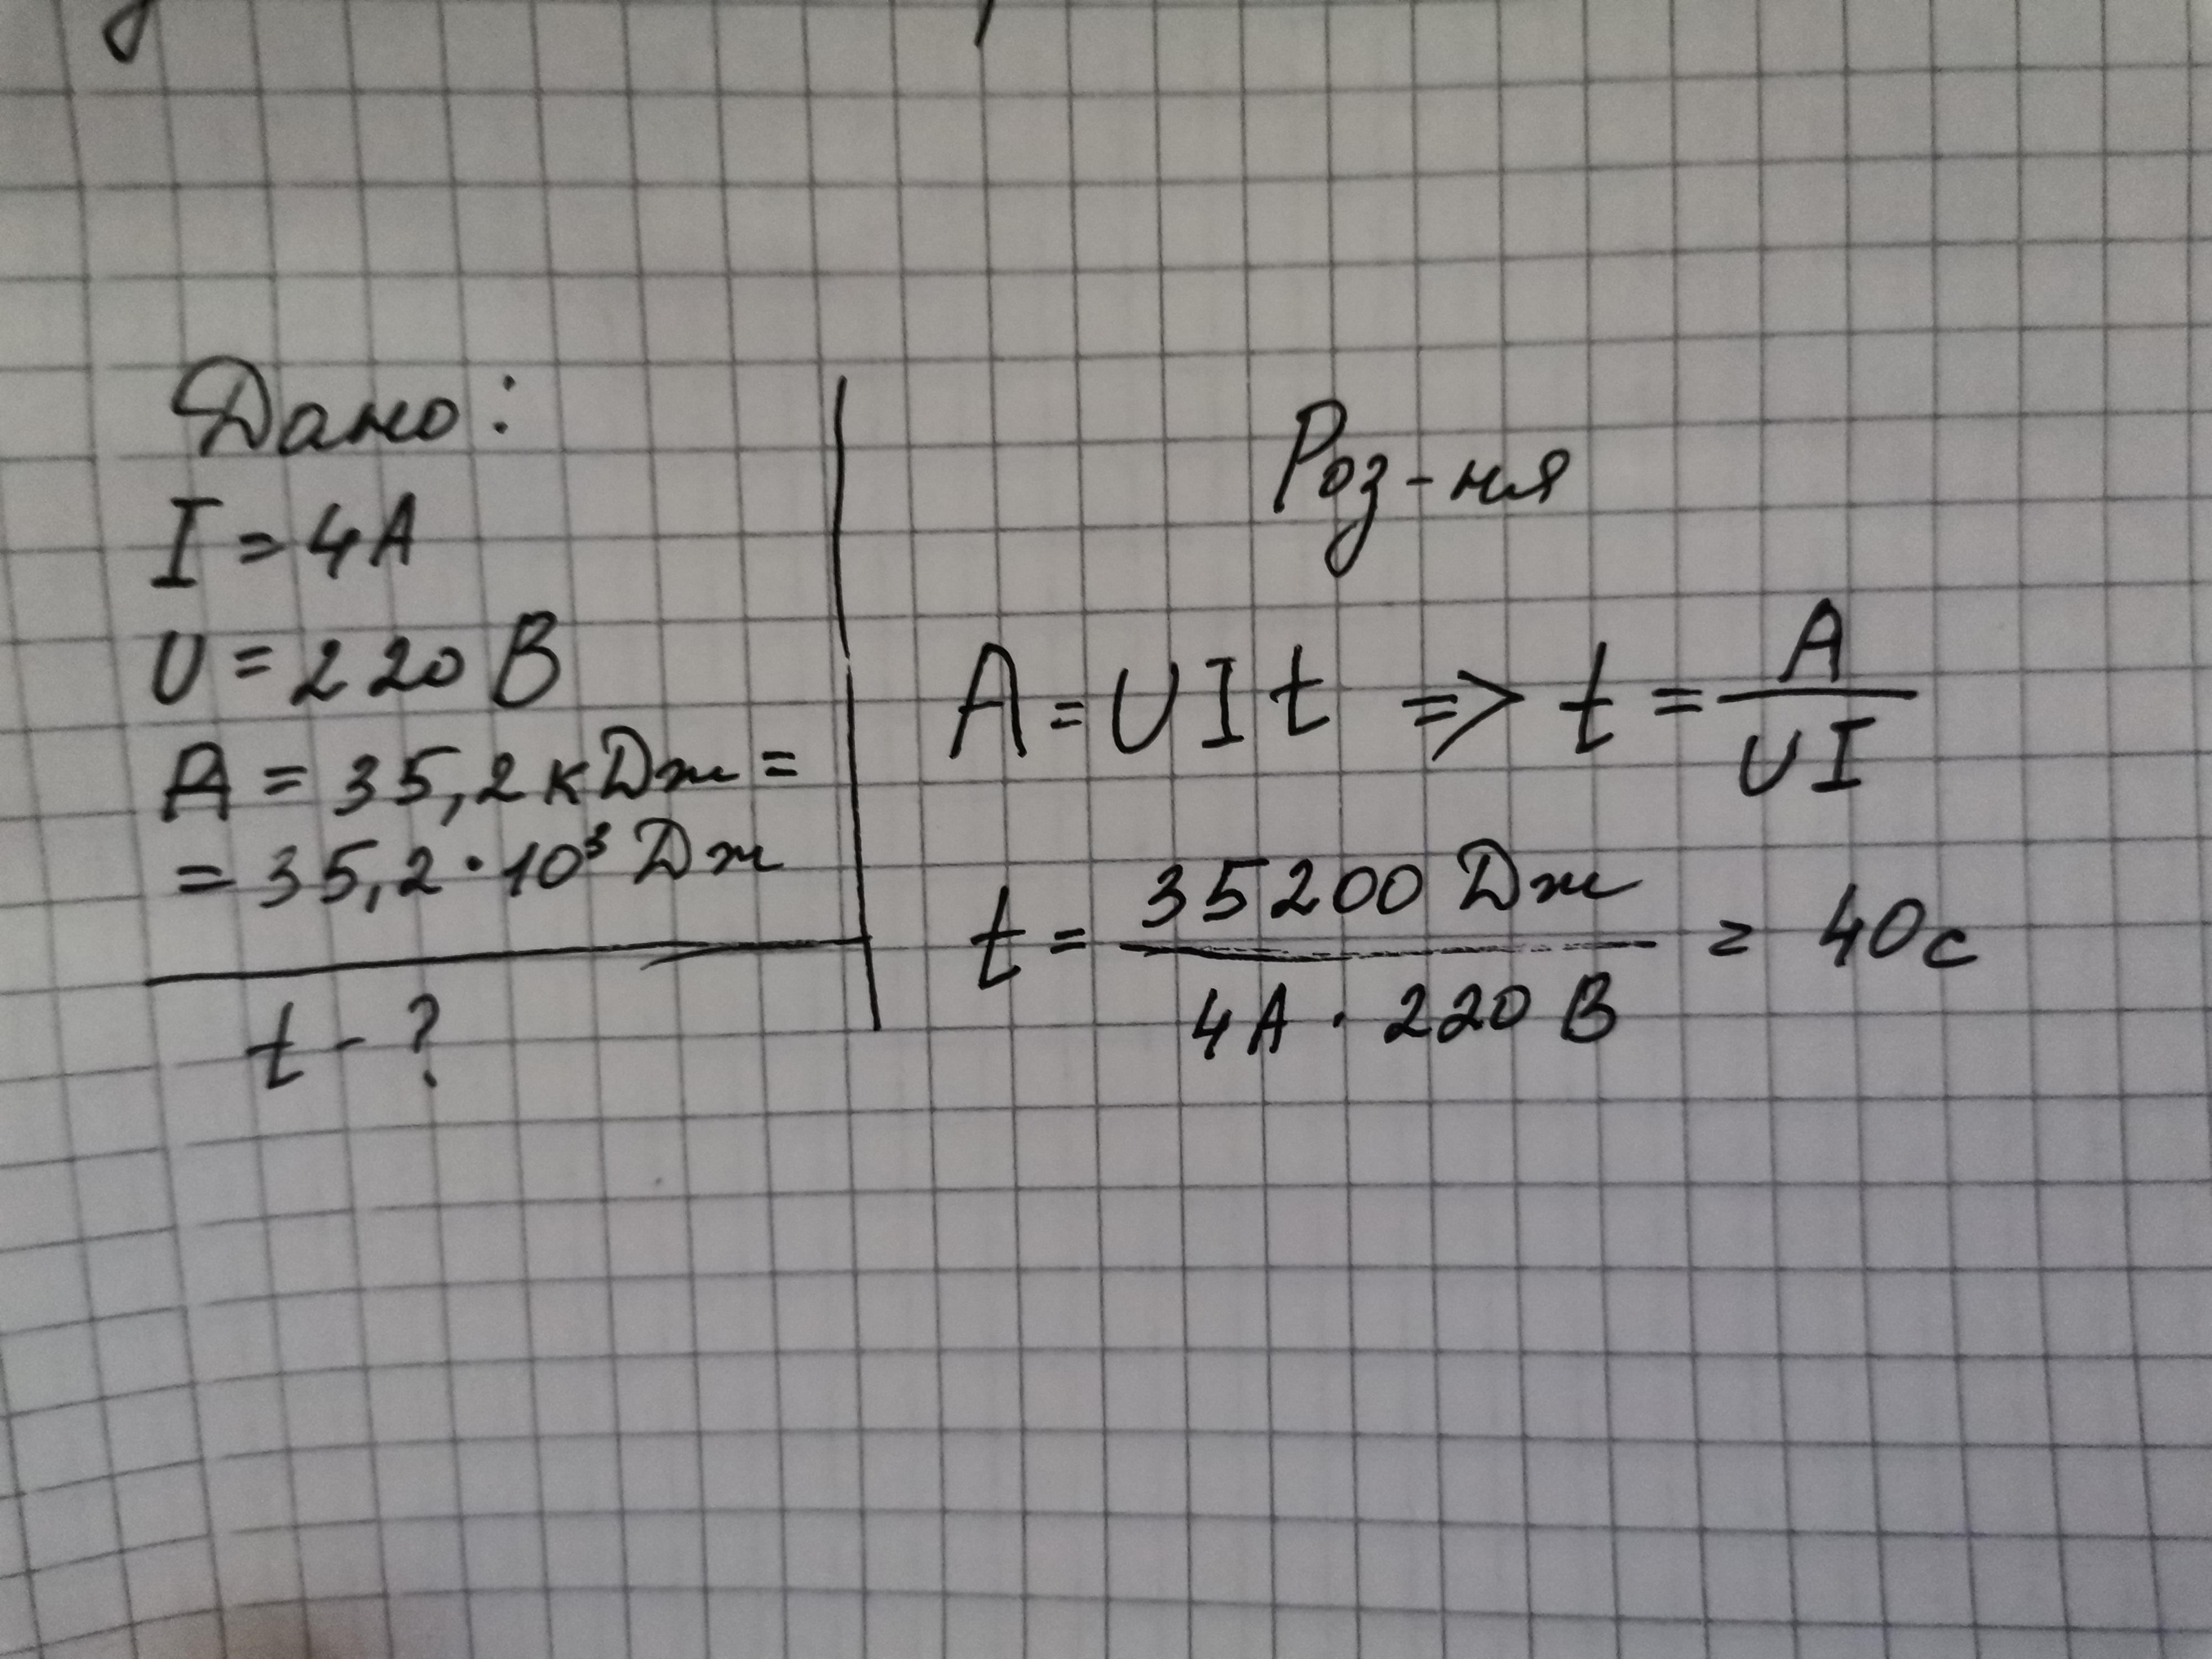 Дано:
I = 4А
U = 220 В
A = 35,2 кДж =
= 35,2 · 10³ Дж
t - ?
Роз-ня
A = UIt => t = A / UI
t = 35200 Дж / 4А · 220 В = 40с